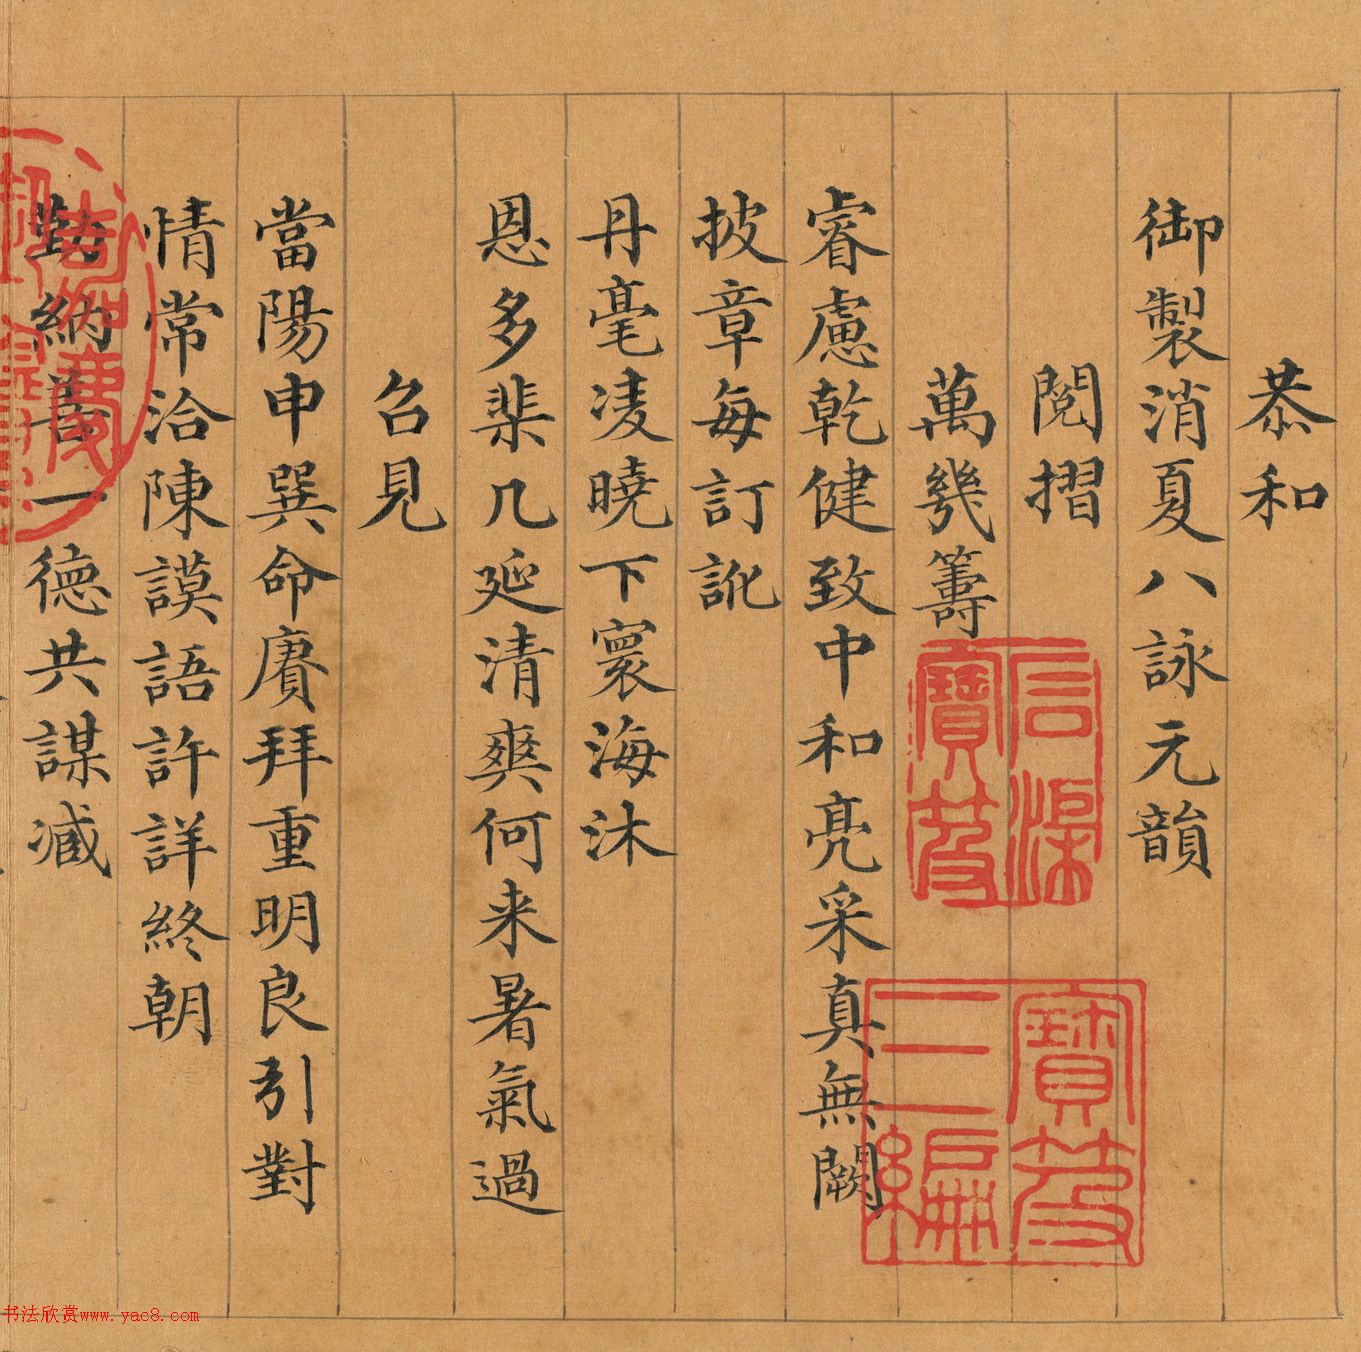 恭和
御製消夏八詠元韻
閱摺
萬幾籌
睿慮乾健致中和亮采真無闕
披章每訂訛
丹毫凌曉下寰海沐
恩多棐几延清爽何来暑氣過
召見
當陽申巽命賡拜重明良引對
情常洽陳謨語許詳終朝
勤納善一德共謀臧
寶笈
三編
寶笈
书法欣赏www.yac8.com